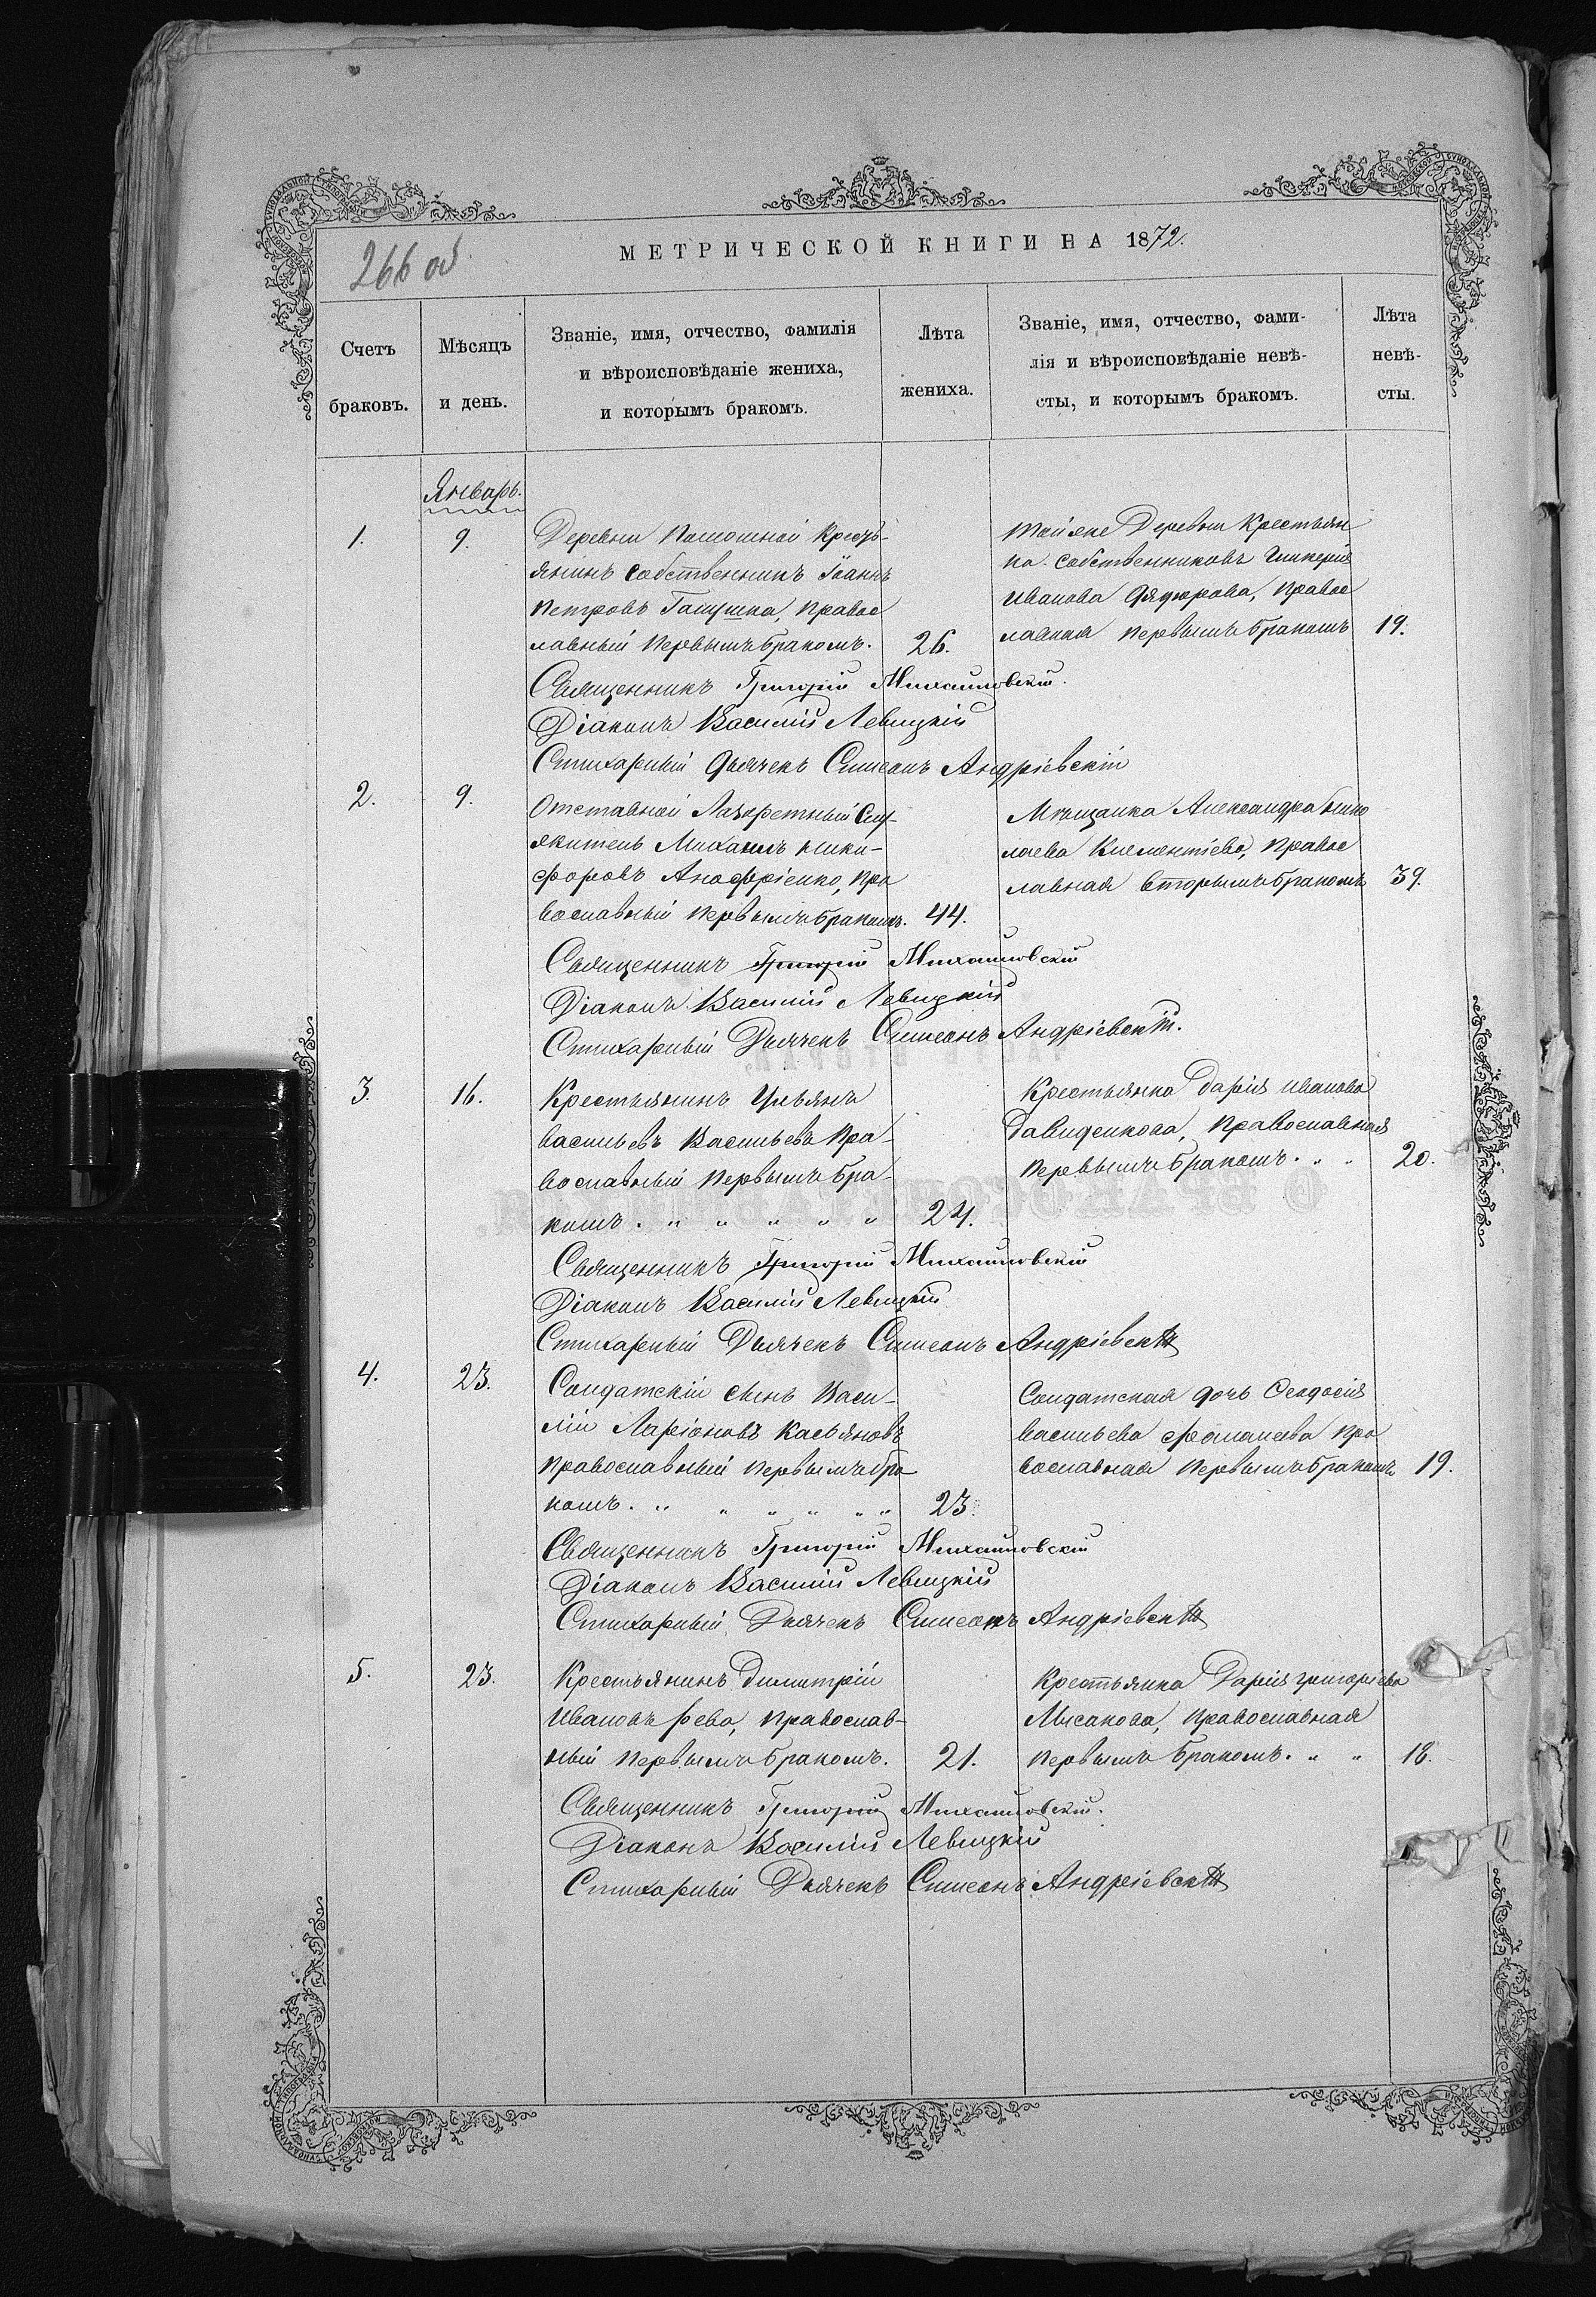 266 об
МЕТРИЧЕСКОЙ КНИГИ НА 1872.
Счетъ браковъ.
Мѣсяцъ и день.
Званіе, имя, отчество, фамилія
и вѣроисповѣданіе жениха,
и которымъ бракомъ.
Лѣта жениха.
Званіе, имя, отчество, фами-
лія и вѣроисповѣданіе невѣ-
сты, и которымъ бракомъ.
Лѣта невѣ-
сты.
Январь.
1. 9.
Деревни Помошной Кресть-
янинъ собственникъ Іоаннъ
Петровъ Галушка, Правос
лавный первымъ бракомъ. 26.
Тойже Деревни Крестьян
ка собственниковъ Гликерія
Иванова Правос
лавная первымъ бракомъ 19.
Священникъ Григорій Михайловскій.
Діаконъ Василій Левицкій
Стихарный дьячекъ Симеонъ Андріевскій
2. 9.
Отставной Лазаретный Слу-
житель Михаилъ Ники-
форовъ Аноффріенко, Пра
вославный первымъ бракомъ. 44.
Мѣщанка Александра Нико
лаева Климентіева, Правос
лавная вторымъ бракомъ 39.
Священникъ Григорій Михайловскій
Діаконъ Василій Левицкій
Стихарный Дьячекъ Симеонъ Андріевскій.
3. 16.
Крестьянинъ Ульянъ
Васильевъ Васильевъ Пра-
вославный первымъ бра-
комъ. " " " " " 24.
Крестьянка Дарія Иванова
Давиденкова, Православная
первымъ бракомъ. " " 20.
Священникъ Григорій Михайловскій
Діаконъ Василій Левицкій
Стихарный Дьячекъ Симеонъ Андріевскій
4. 23.
Солдатскій сынъ Васи-
лій Ларіоновъ Касьяновъ
Православный первымъ бра
комъ. " " " " " " 23.
Солдатская дочь Феодосія
Васильева Пра
вославная первымъ бракомъ 19.
Священникъ Григорій Михайловскій
Діаконъ Василій Левицкій
Стихарный Дьячекъ Симеонъ Андріевскій
5. 23.
Крестьянинъ Димитрій
Ивановъ Православ-
ный первымъ бракомъ. 21.
Крестьянка Дарія Григоріева
Лысакова, Православная
первымъ бракомъ. " " 18.
Священникъ Григорій Михайловскій.
Діаконъ Василій Левицкій
Стихарный Дьячекъ Симеонъ Андріевскій